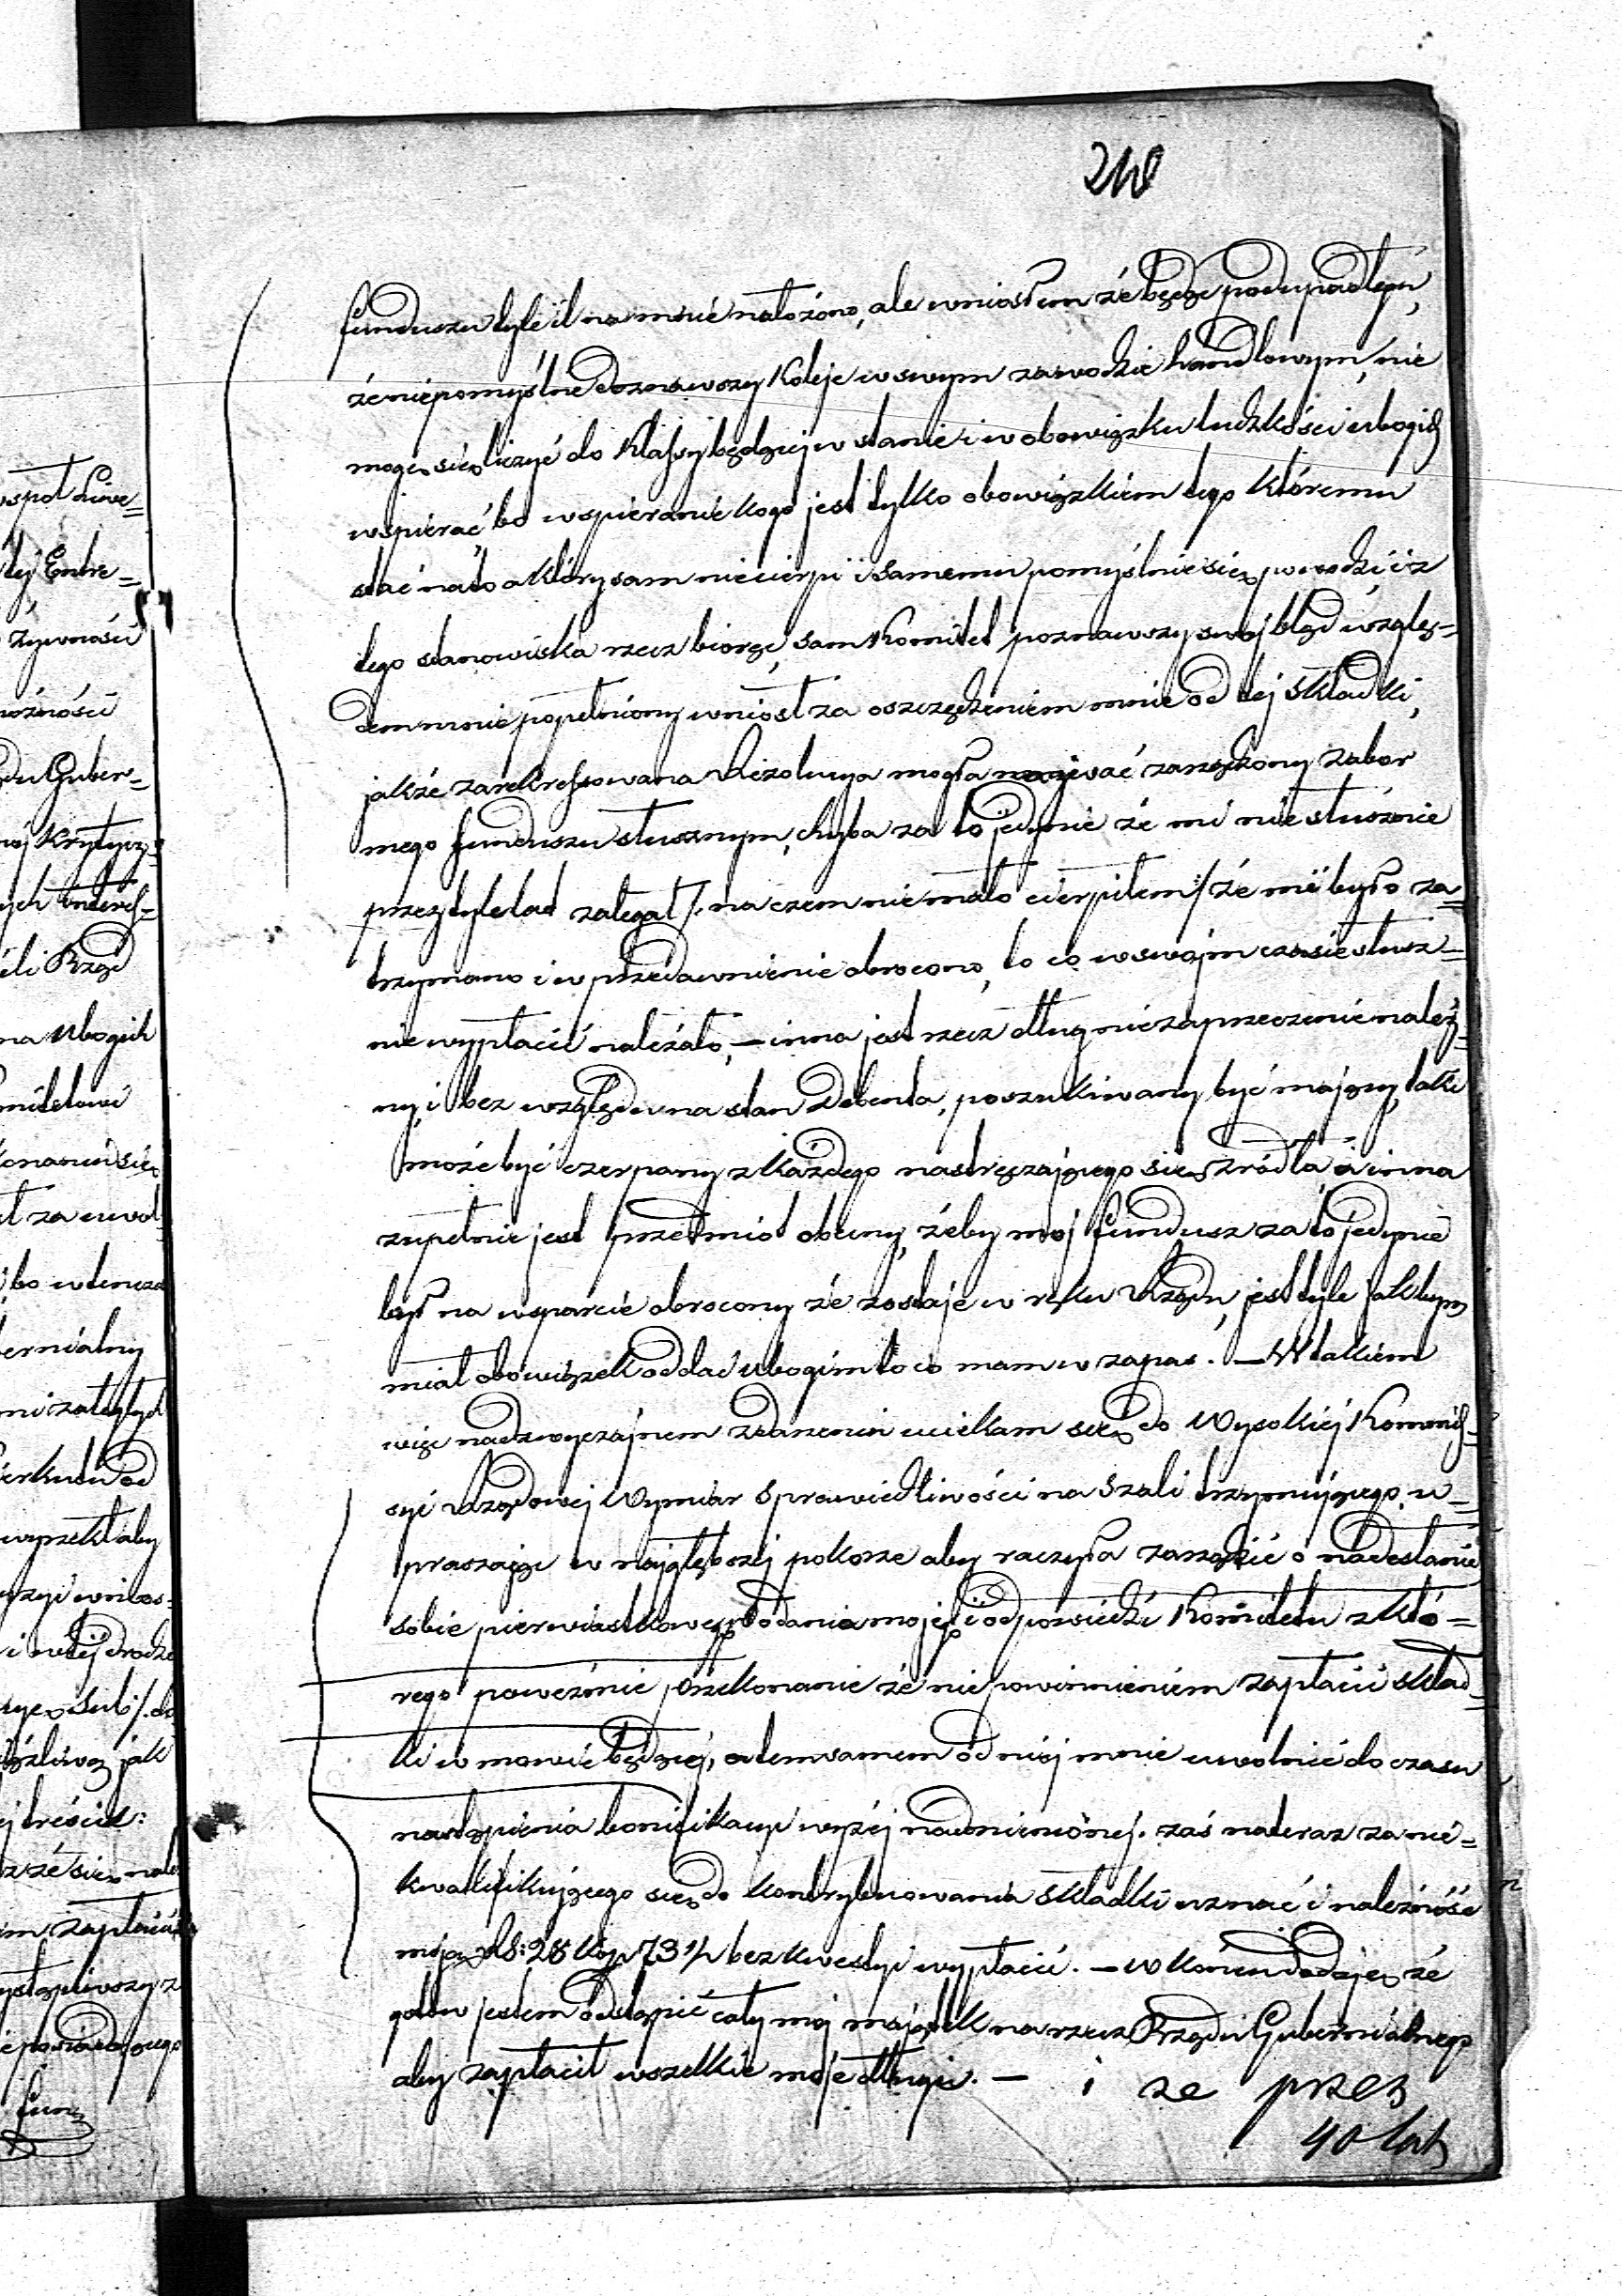 218
funduszu tyle il na mnie nałożono, ale wniosłem że będąc podupadłym,
że niepomyślne doznawszy koleje w swym zawodzie handlowym, nie
mogę się liczyć do klassy będącej w stanie i w obowiązku ludzkości ubogich
wspierać, bo wspieranie kogo jest tylko obowiązkiem tego któremu
stać na to a który sam nie cierpi i samemu pomyślnie się powodzi, i z
tego stanowiska rzecz biorąc, sam Komitet poznawszy swój błąd wzglę=
dem mnie popełniony wniósł za oszczędzeniem mnie od tej składki,
jakże zarekressowana Rezolucya mogła nazywać zarządzony zabor
mego funduszu słusznym, chyba za to jedynie że mi nie słusznie
przez tyle lat zalegał /: na czem nie mało cierpiłem :/ że mi było za=
trzymano i w przedawnienie obrocono, to co w swojm czasie słusz=
nie wypłacić należało, — inna jest rzecz dług niezaprzeczenie należ=
ny, i bez względu na stan Debenta, poszukiwany być mający, taki
może być czerpany z każdego nastręczającego się źródła, a inna
zupełnie jest przedmiot obecny, żeby moj fundusz za to jedynie
był na wsparcie obrocony że zostaje w ręku Rządu, jest tyle jakbym
miał obowiązek oddać ubogim to co mam w zapas. — W takiem
więc nadzwyczajnem zdarzeniu uciekam się do Wysokiej Kommis=
syi Rządowej Wymiar Sprawiedliwości na szali trzymującego, u=
praszając w najgłębszej pokorze aby raczyła zarządzić o nadesłanie
sobie pierwiastkowego podania mojego i odpowiedzi Komitetu z któ=
rego poweźmie przekonanie że nie powinienem zapłacić skład=
ki w mowie będącej, a tem samem od niej mnie uwolnić do czasu
nastąpienia bonifikacyi wyżej nadmienionej. zaś na teraz za nie=
kwalifikującego się do kontrybuowania składki uznać i należność
moją RS: 28 kop 73 1/2 bez kwestyi wypłacić. — w końcu dodaję że
gotów jestem odstąpić cały moj majątek na rzecz Rządu Gubernialnego
aby zapłacił wszelkie moje długi. — i ze przez
40 lat